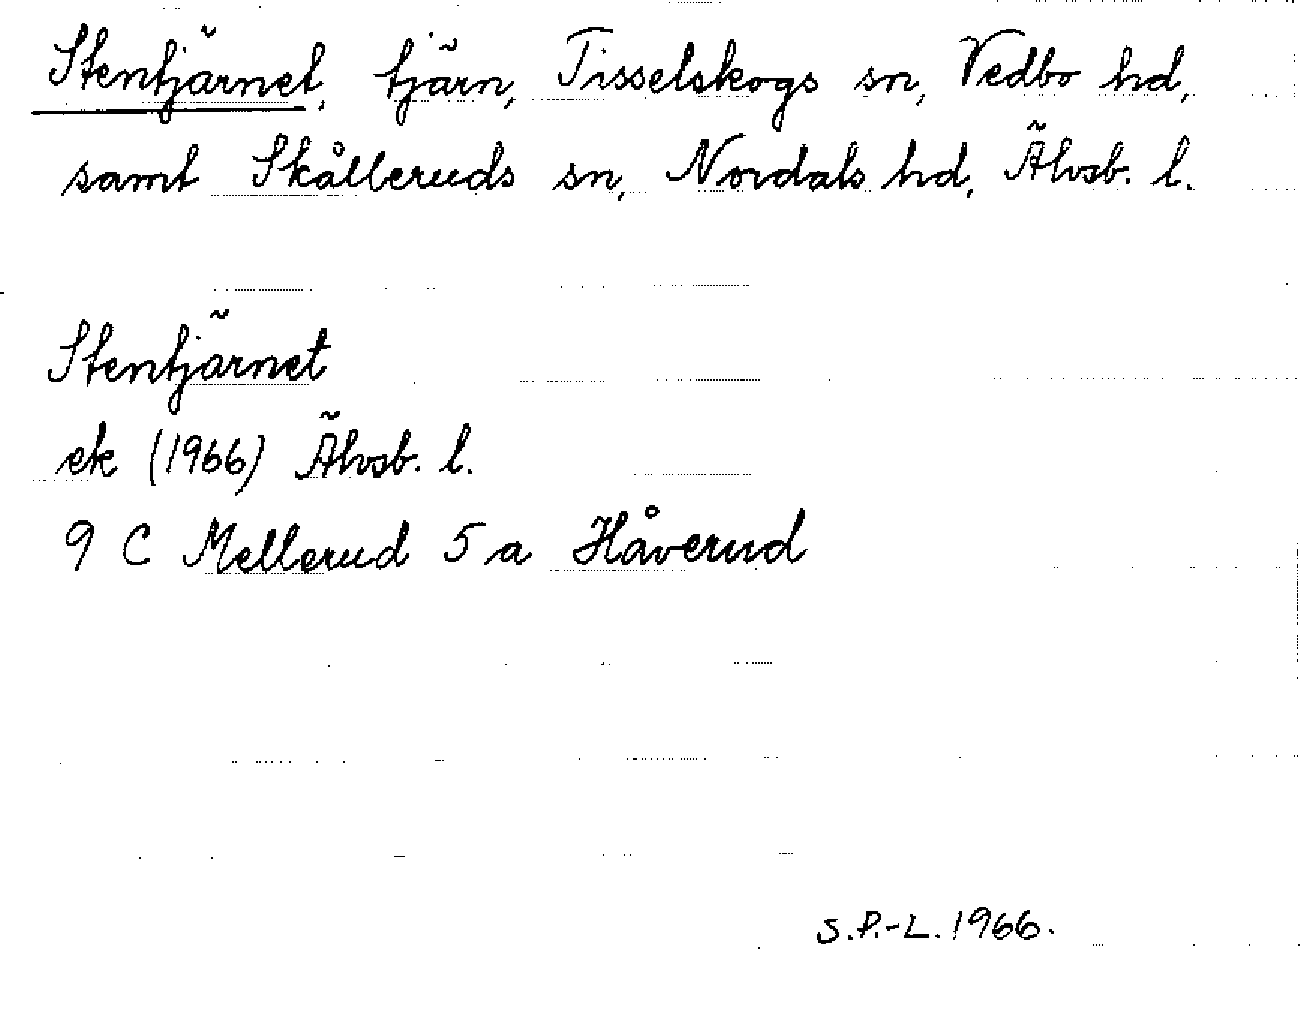 Stentjärnet, tjärn, Tisselskogs sn, Vedbo hd,
samt Skålleruds sn, Nordals hd, Älvsb. l.
Stentjärnet
ek (1966) Älvsb. l.
9 C Mellerud 5 a Håverud
S.P.-L. 1966.